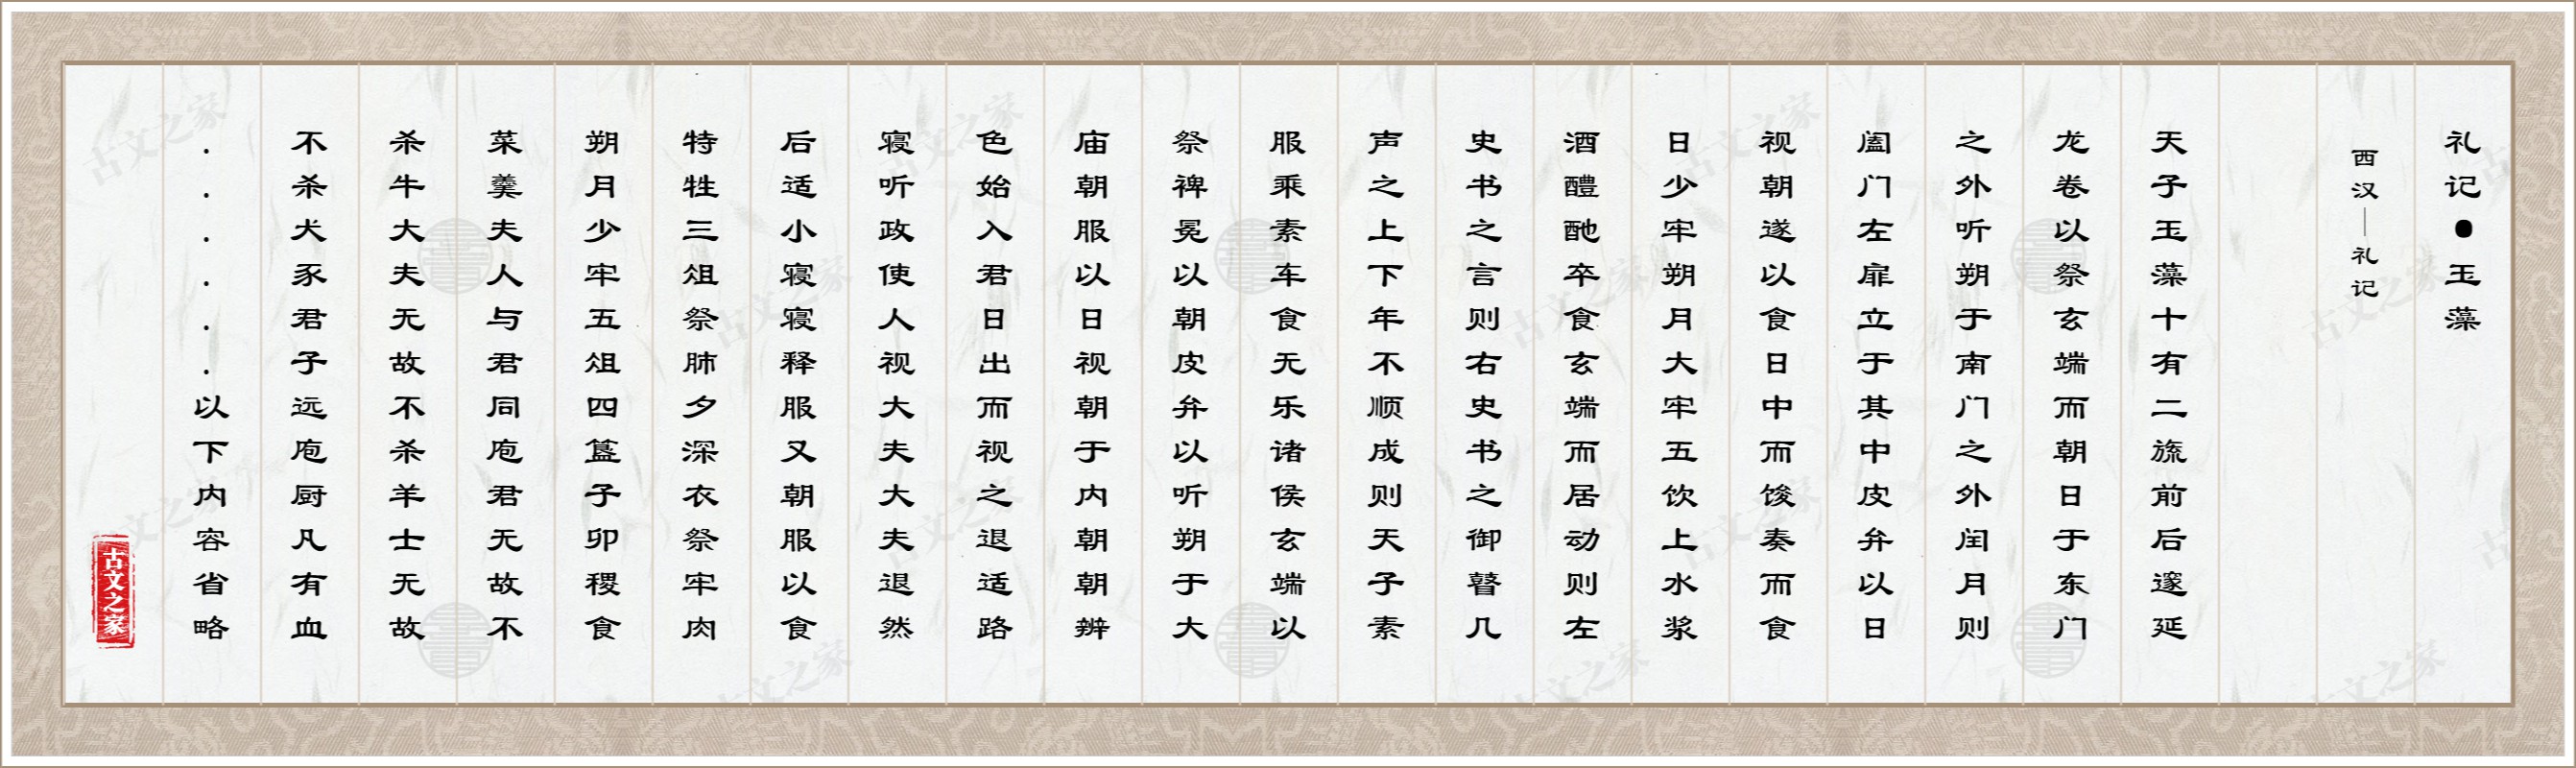 礼记●玉藻
西汉—礼记
天子玉藻十有二旒前后邃延
龙卷以祭玄端而朝日于东门
之外听朔于南门之外闰月则
阖门左扉立于其中皮弁以日
视朝遂以食日中而馂奏而食
日少牢朔月大牢五饮上水浆
酒醴酏卒食玄端而居动则左
史书之言则右史书之御瞽几
声之上下年不顺成则天子素
服乘素车食无乐诸侯玄端以
祭裨冕以朝皮弁以听朔于大
庙朝服以日视朝于内朝朝辨
色始入君日出而视之退适路
寝听政使人视大夫大夫退然
后适小寝寝释服又朝服以食
特牲三俎祭肺夕深衣祭牢肉
朔月少牢五俎四簋子卯稷食
菜羹夫人与君同庖君无故不
杀牛大夫无故不杀羊士无故
不杀犬豕君子远庖厨凡有血
......以下内容省略
古文之家